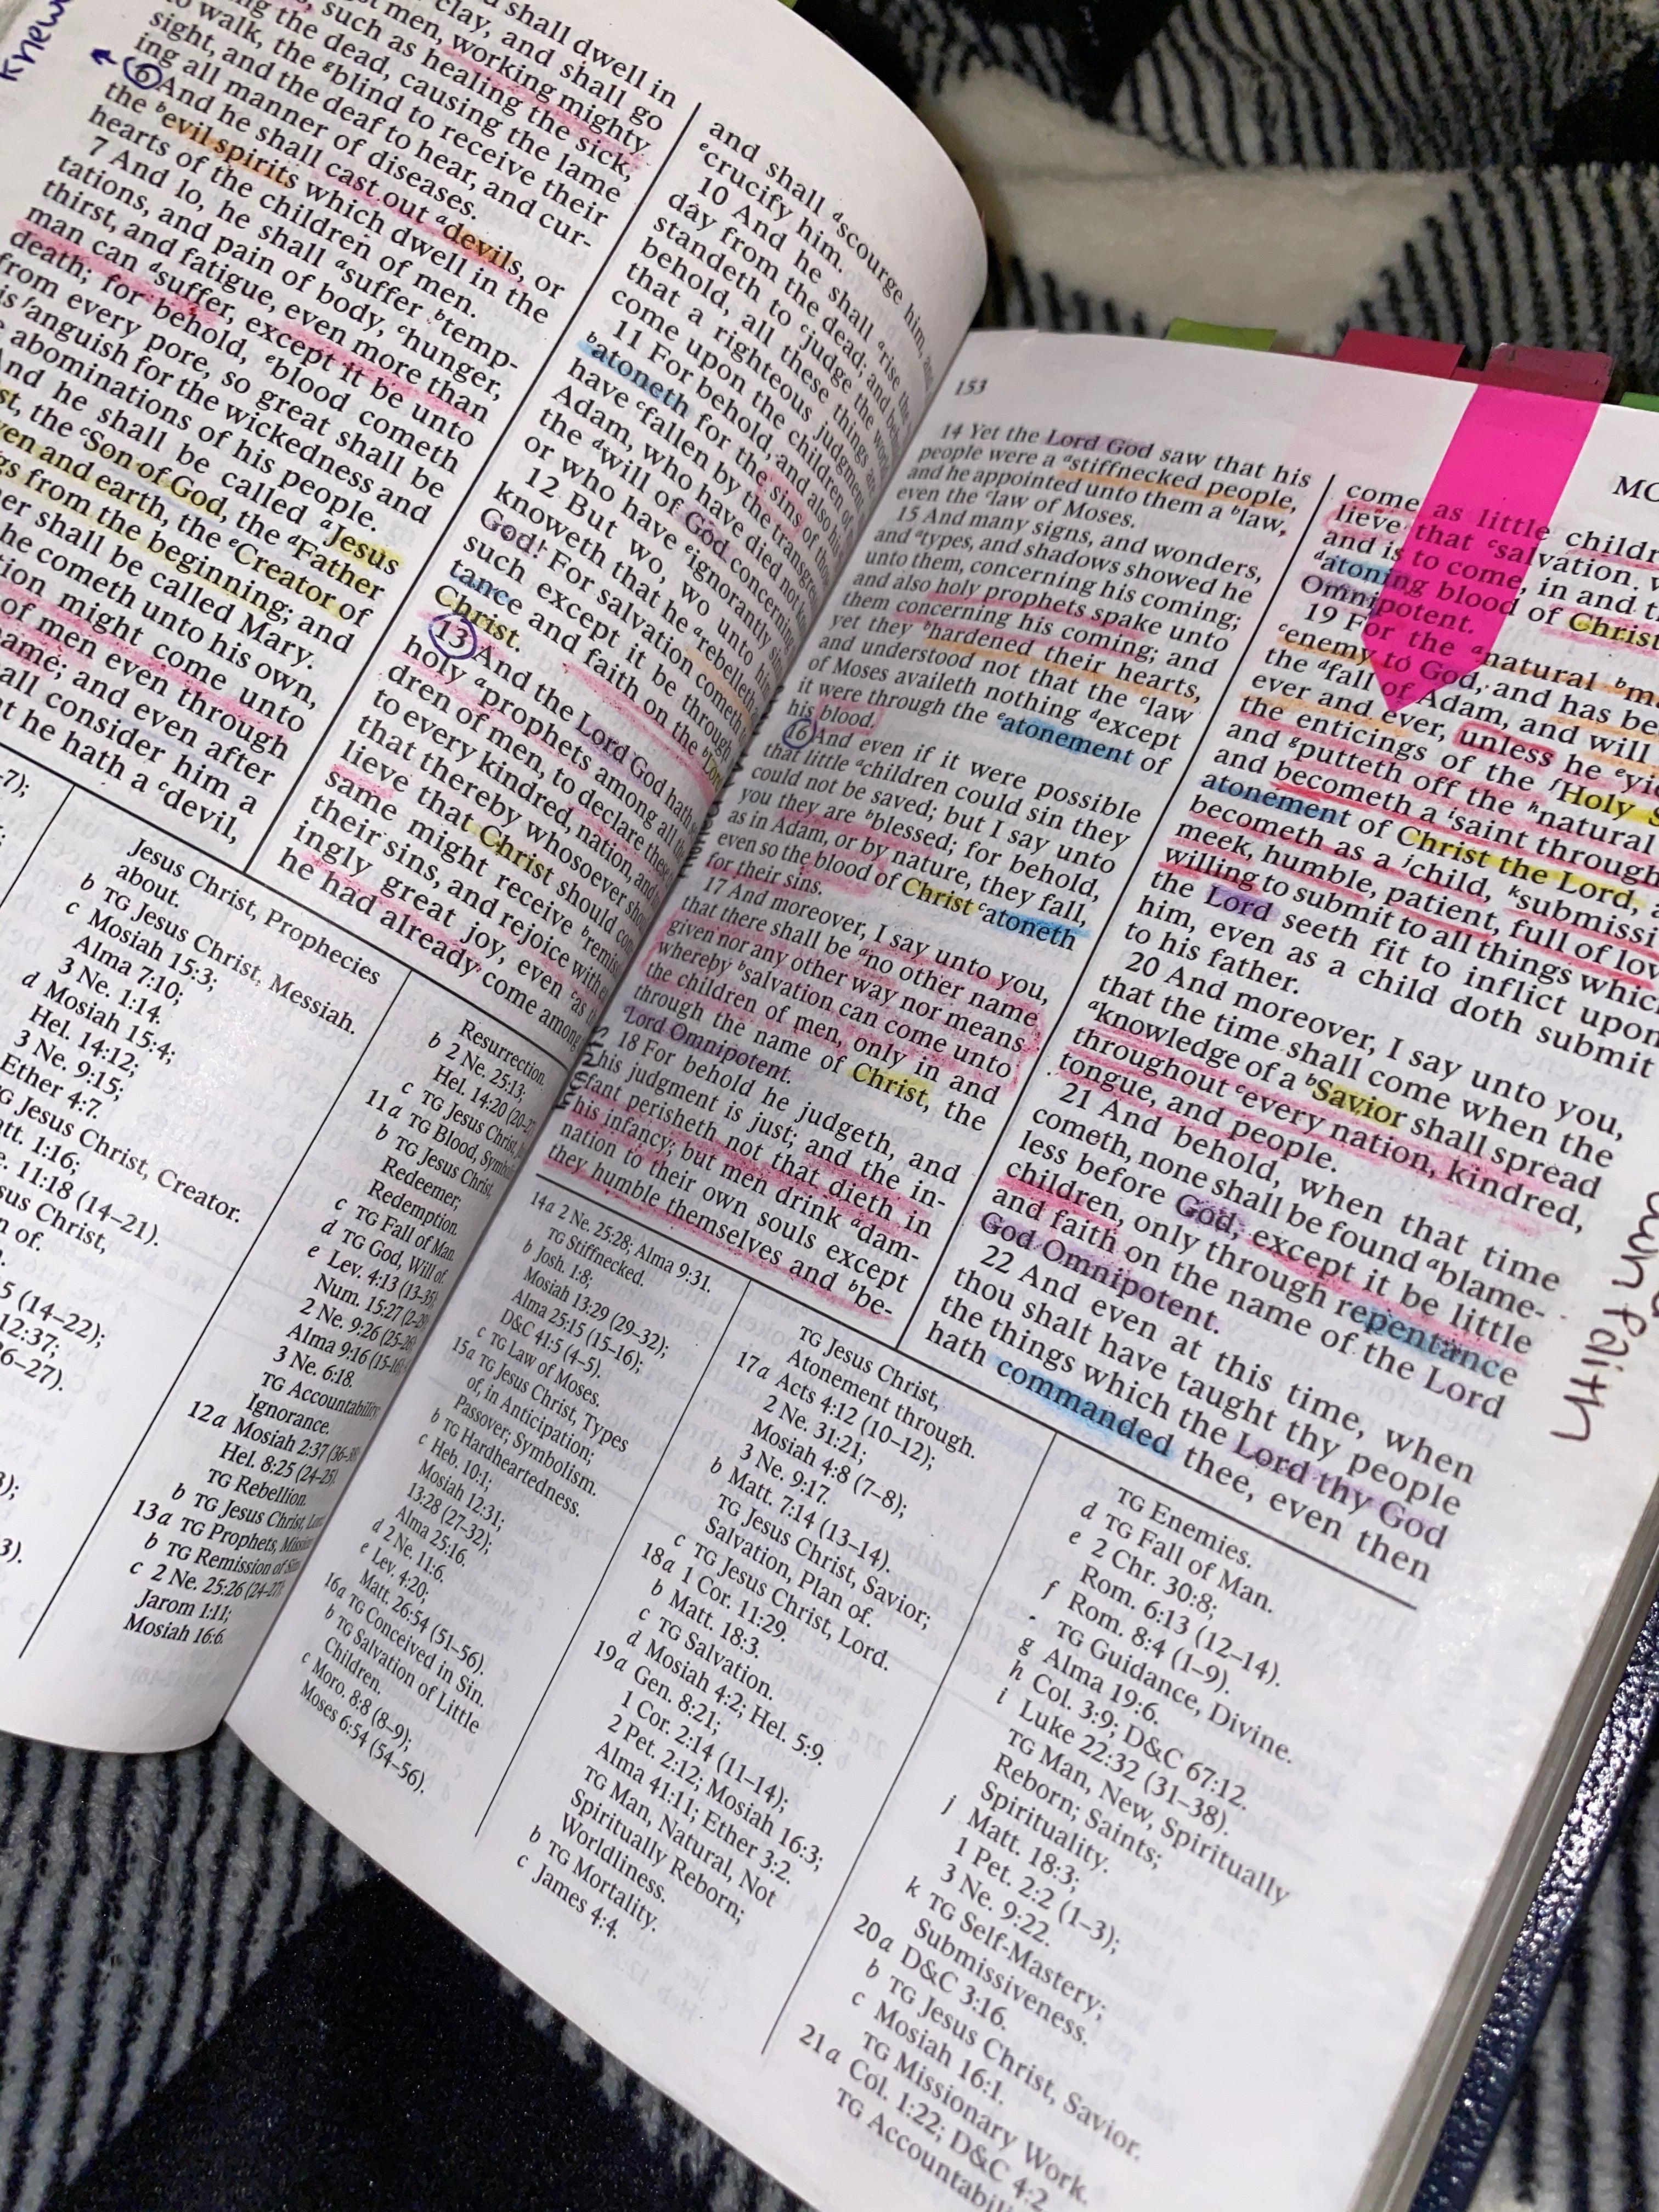 knew
shall dwell in
clay, and shall go
men, working mighty
such as healing the sick,
the dead, causing the lame
to walk, the gblind to receive their
sight, and the deaf to hear, and cur-
ing all manner of diseases.
6 And he shall cast out adevils, or
the bevil spirits which dwell in the
hearts of the children of men.
7 And lo, he shall asuffer btemp-
tations, and pain of body, chunger,
thirst, and fatigue, even more than
man can dsuffer, except it be unto
death; for behold, eblood cometh
from every pore, so great shall be
fanguish for the wickedness and
abominations of his people.
And he shall be called aJesus
the cSon of God, the dFather
and earth, the eCreator of
from the beginning; and
shall be called Mary.
he cometh unto his own,
might come unto
of men even through
and even after
consider him a
he hath a cdevil,
and shall dscourge him, and
ecrucify him.
10 And he shall arise the
day from the dead; and
standeth to cjudge the
behold, all these things are
that a righteous judgment
come upon the children of
11 For behold, and also his
batoneth for the sins of those
have cfallen by the
Adam, who have died not
the dwill of God concerning
or who have eignorantly
12 But wo, wo unto him
knoweth that he arebelleth
God! For salvation cometh
such except it be through
tance and faith on the
Christ.
13 And the Lord God hath
holy aprophets among all the
dren of men, to declare these
to every kindred, nation, and
that thereby whosoever
lieve that Christ should
same might receive
their sins, and rejoice with
ingly great joy, even cas
he had already come among
Jesus Christ, Prophecies
about.
b TG Jesus Christ, Messiah.
c Mosiah 15:3;
Alma 7:10;
3 Ne. 1:14.
d Mosiah 15:4;
Hel. 14:12;
3 Ne. 9:15;
Ether 4:7.
Jesus Christ, Creator.
1:16;
11:18 (14–21).
Christ,
of.
(14–22);
12:37;
Resurrection.
b 2 Ne. 25:13;
Hel. 14:20
c TG Jesus Christ,
11a TG Blood,
b TG Jesus Christ,
Redeemer;
Redemption.
c TG Fall of Man.
d TG God, Will of.
e Lev. 4:13
Num. 15:27
2 Ne. 9:26
Alma 9:16
3 Ne. 6:18.
TG Accountability;
Ignorance.
12a Mosiah 2:37
Hel. 8:25 (24–25).
TG Rebellion.
b TG Jesus Christ,
13a TG Prophets,
b TG Remission of
c 2 Ne. 25:26 (24–27);
Jarom 1:11;
Mosiah 16:6.
153
14 Yet the Lord God saw that his
people were a astiffnecked people,
and he appointed unto them a blaw,
even the claw of Moses.
15 And many signs, and wonders,
and atypes, and shadows showed he
unto them, concerning his coming;
and also holy prophets spake unto
them concerning his coming; and
yet they bhardened their hearts,
and understood not that the claw
of Moses availeth nothing dexcept
it were through the eatonement of
his blood.
16 And even if it were possible
that little achildren could sin they
could not be saved; but I say unto
you they are bblessed; for behold,
as in Adam, or by nature, they fall,
even so the blood of Christ catoneth
for their sins.
17 And moreover, I say unto you,
that there shall be ano other name
given nor any other way nor means
whereby bsalvation can come unto
the children of men, only in and
through the name of Christ, the
cLord Omnipotent.
18 For behold he judgeth, and
his judgment is just; and the in-
fant perisheth not that dieth in
his infancy; but men drink adam-
nation to their own souls except
they humble themselves and bbe-
MO
come as little childr
lieve that csalvation
and is to come, in and
datoning blood of Christ
Omnipotent.
19 For the anatural bm
cenemy to God, and has be
the dfall of Adam, and will
ever and ever, unless he eyi
the enticings of the fHoly S
and gputteth off the hnatural
and becometh a isaint through
atonement of Christ the Lord, a
becometh as a jchild, ksubmissi
meek, humble, patient, full of lov
willing to submit to all things whic
the Lord seeth fit to inflict upon
him, even as a child doth submit
to his father.
20 And moreover, I say unto you,
that the time shall come when the
aknowledge of a bSavior shall spread
throughout cevery nation, kindred,
tongue, and people.
21 And behold, when that time
cometh, none shall be found ablame-
less before God, except it be little
children, only through repentance
and faith on the name of the Lord
God Omnipotent.
22 And even at this time, when
thou shalt have taught thy people
the things which the Lord thy God
hath commanded thee, even then
own faith
14a 2 Ne. 25:28; Alma 9:31.
TG Stiffnecked.
b Josh. 1:8;
Mosiah 13:29 (29–32);
Alma 25:15 (15–16);
D&C 41:5 (4–5).
c TG Law of Moses.
15a TG Jesus Christ, Types
of, in Anticipation;
Passover; Symbolism.
b TG Hardheartedness.
c Heb. 10:1;
Mosiah 12:31;
13:28 (27–32);
Alma 25:16.
d 2 Ne. 11:6.
e Lev. 4:20;
Matt. 26:54 (51–56).
16a TG Conceived in Sin.
b TG Salvation of Little
Children.
c Moro. 8:8 (8–9);
Moses 6:54 (54–56).
TG Jesus Christ,
Atonement through.
17a Acts 4:12 (10–12);
2 Ne. 31:21;
Mosiah 4:8 (7–8);
3 Ne. 9:17.
b Matt. 7:14 (13–14).
TG Jesus Christ, Savior;
Salvation, Plan of.
c TG Jesus Christ, Lord.
18a 1 Cor. 11:29.
b Matt. 18:3.
c TG Salvation.
d Mosiah 4:2; Hel. 5:9.
19a Gen. 8:21;
1 Cor. 2:14 (11–14);
2 Pet. 2:12; Mosiah 16:3;
Alma 41:11; Ether 3:2.
TG Man, Natural, Not
Spiritually Reborn;
Worldliness.
b TG Mortality.
c James 4:4.
TG Enemies.
d TG Fall of Man.
e 2 Chr. 30:8;
Rom. 6:13 (12–14).
f Rom. 8:4 (1–9).
TG Guidance, Divine.
g Alma 19:6.
h Col. 3:9; D&C 67:12.
i Luke 22:32 (31–38).
TG Man, New, Spiritually
Reborn; Saints;
Spirituality.
j Matt. 18:3;
1 Pet. 2:2 (1–3);
3 Ne. 9:22.
k TG Self-Mastery;
Submissiveness.
20a D&C 3:16.
b TG Jesus Christ, Savior.
c Mosiah 16:1.
TG Missionary Work.
21a Col. 1:22; D&C 4:2.
TG Accountabili